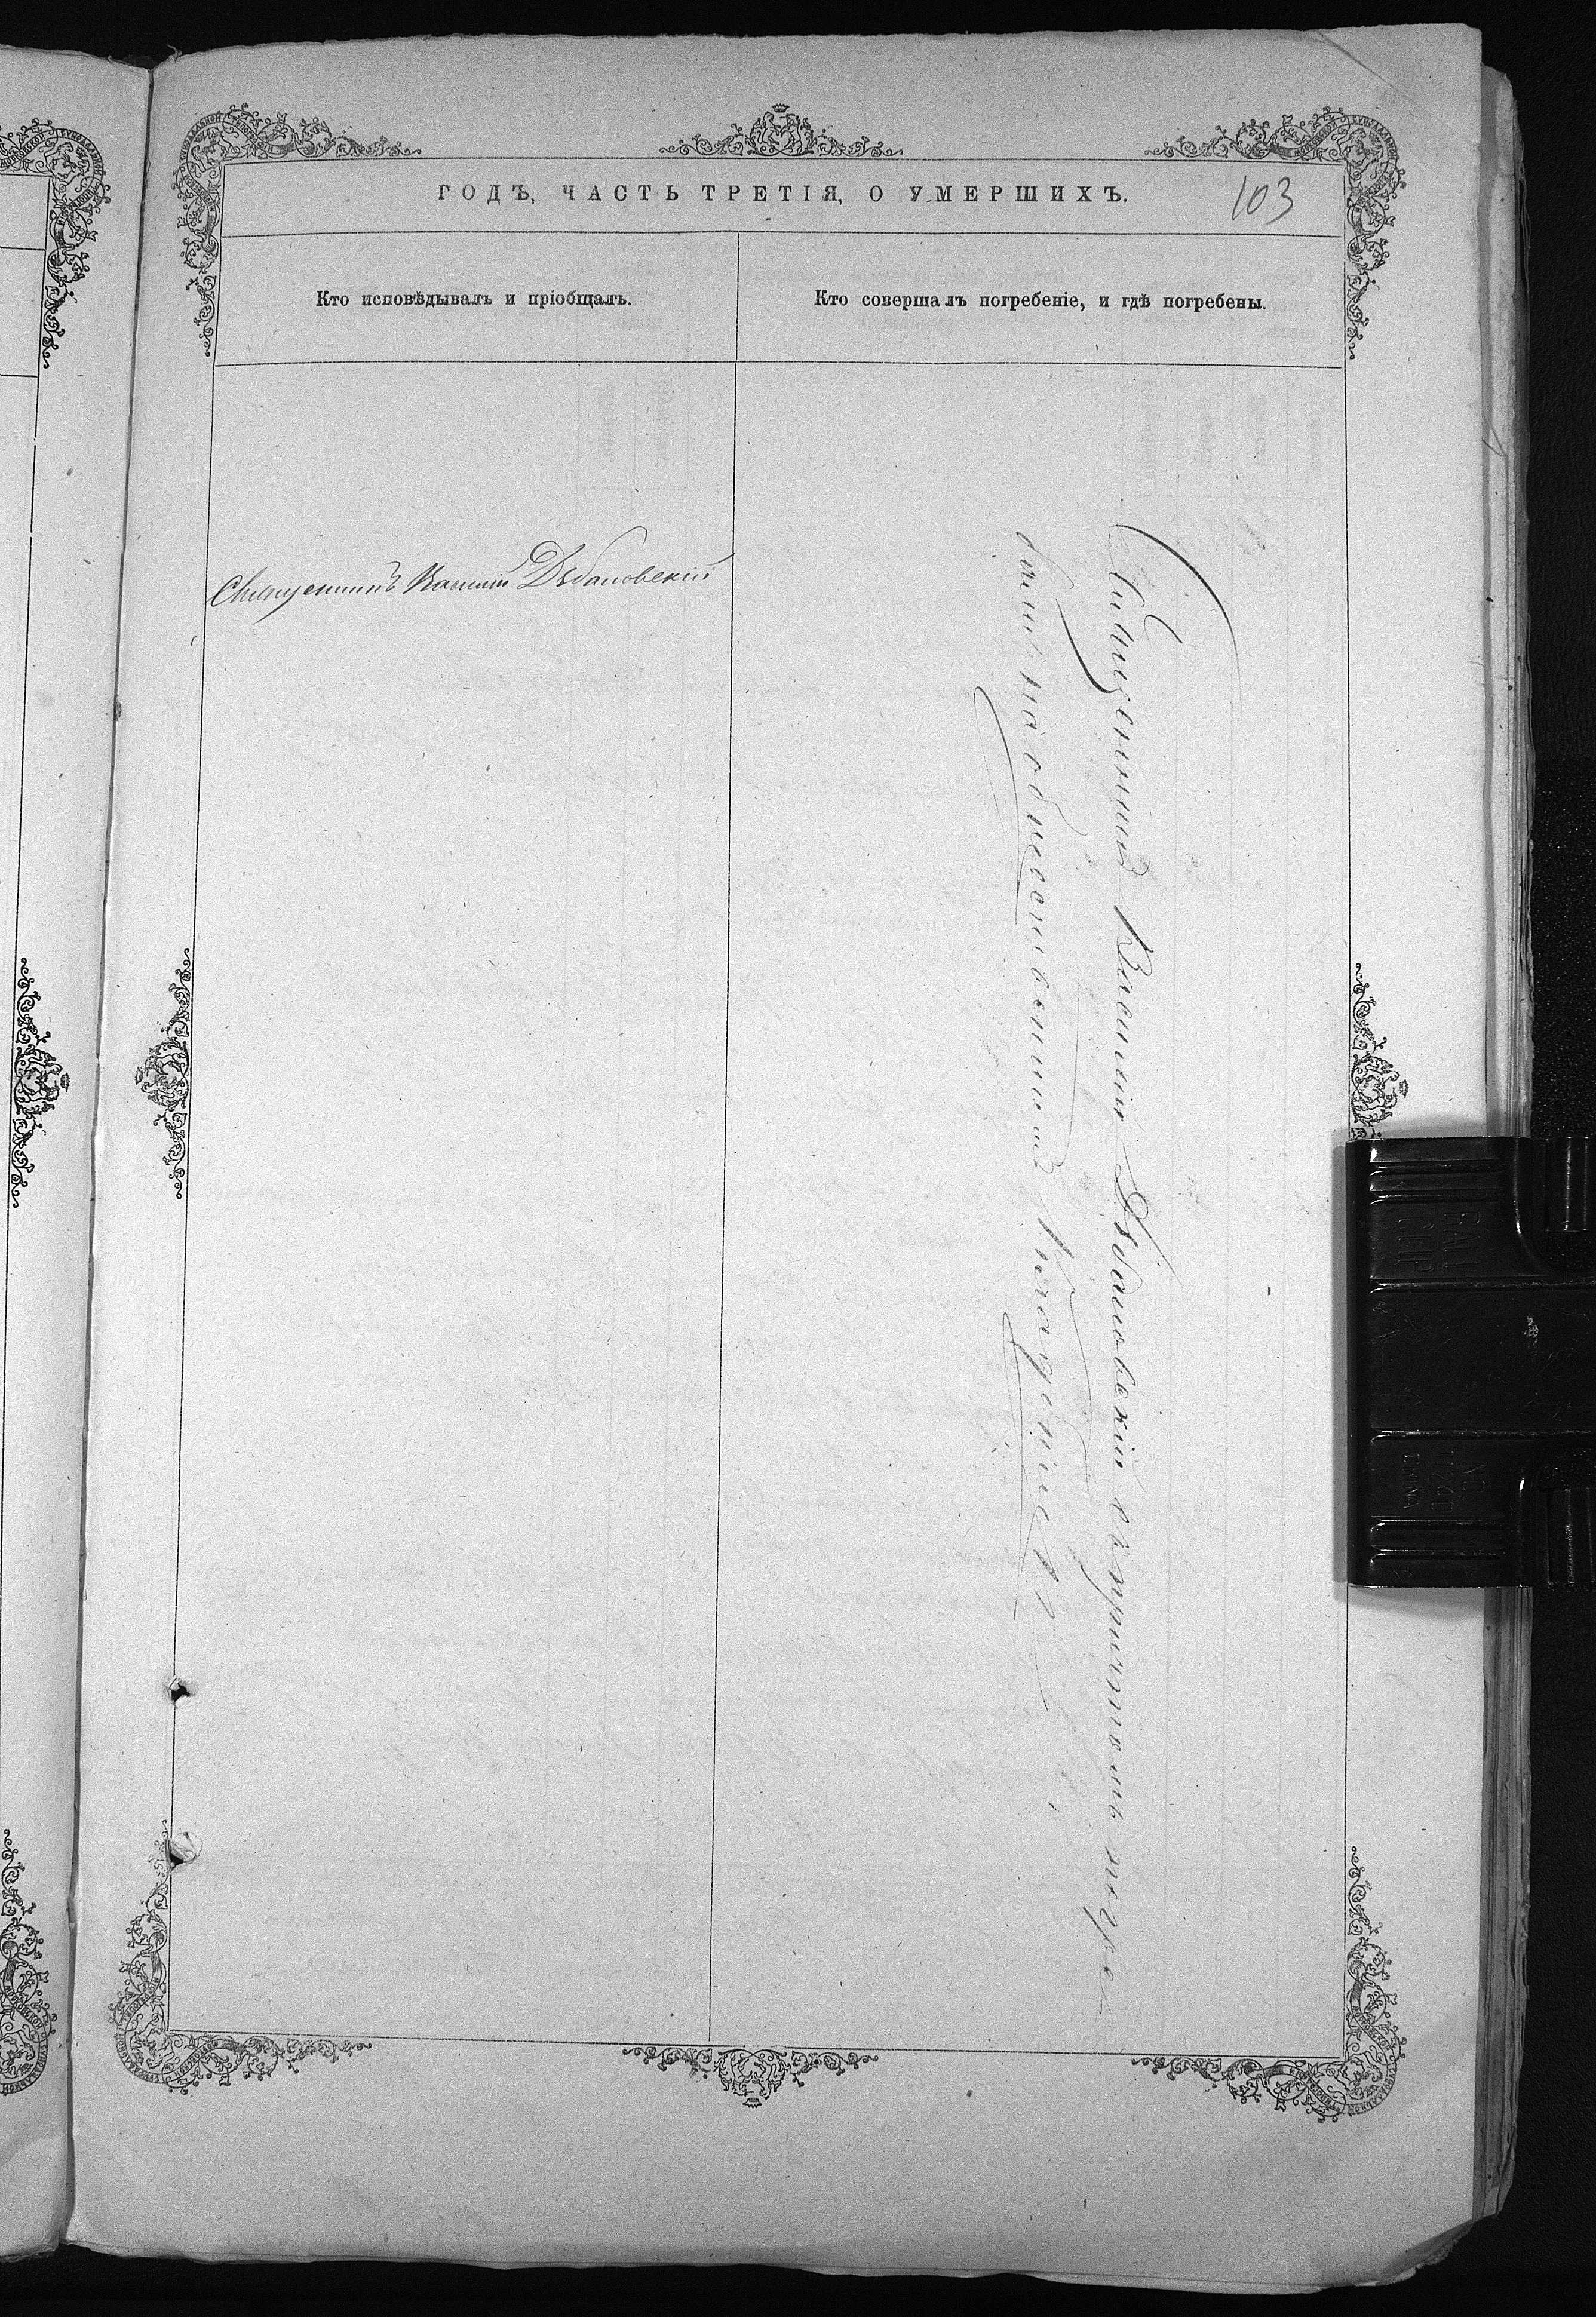 ГОДЪ, ЧАСТЬ ТРЕТІЯ, О УМЕРШИХЪ.
103
Кто исповѣдывалъ и пріобщалъ.
Кто совершалъ погребеніе, и гдѣ погребены.
Священникъ Василій Дѣбановскій
Священникъ Василій Дѣбановскій съ причтомъ погре-
бены на общественномъ кладбищѣ